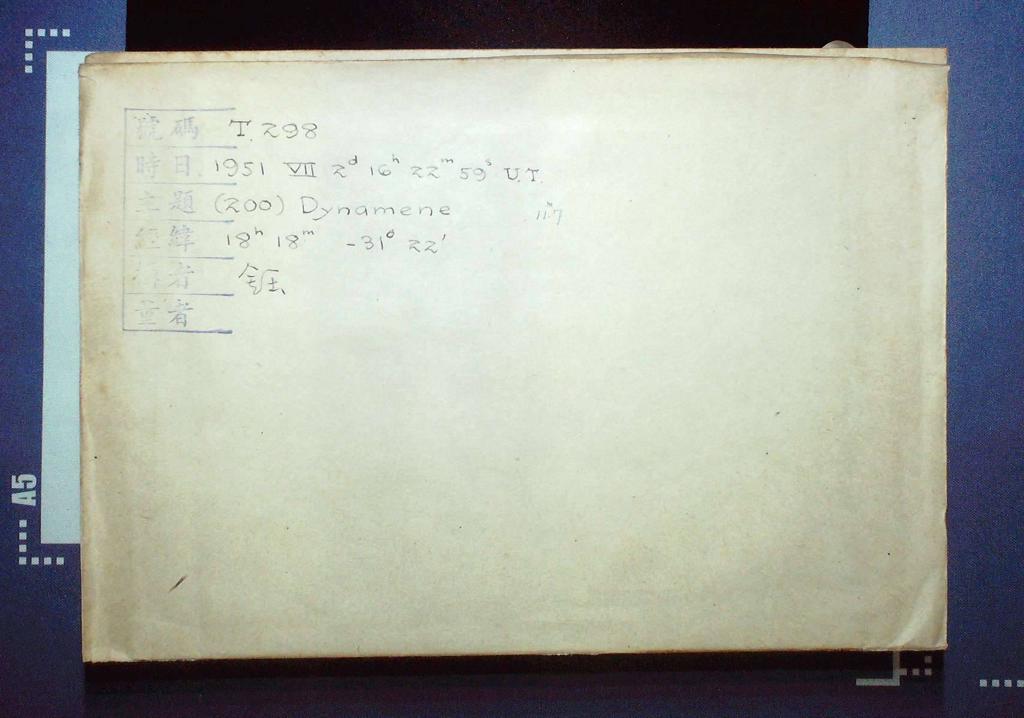 號碼 T.298
時日 1951 VII 2ᵈ 16ʰ 22ᵐ 59ˢ U.T.
主題 (200) Dynamene 11ᵐ.7
經緯 18ʰ 18ᵐ -31° 22'
者
量者
A5